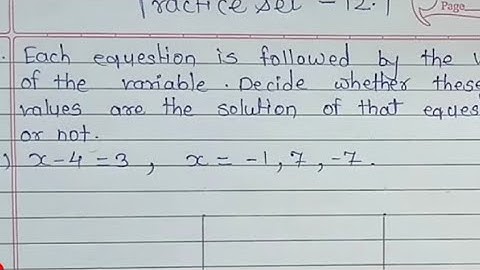 Practice Set - 12.1
Page
Each equestion is followed by the
of the variable. Decide whether these
values are the solution of that eques
or not.
) x - 4 = 3 , x = -1, 7, -7.